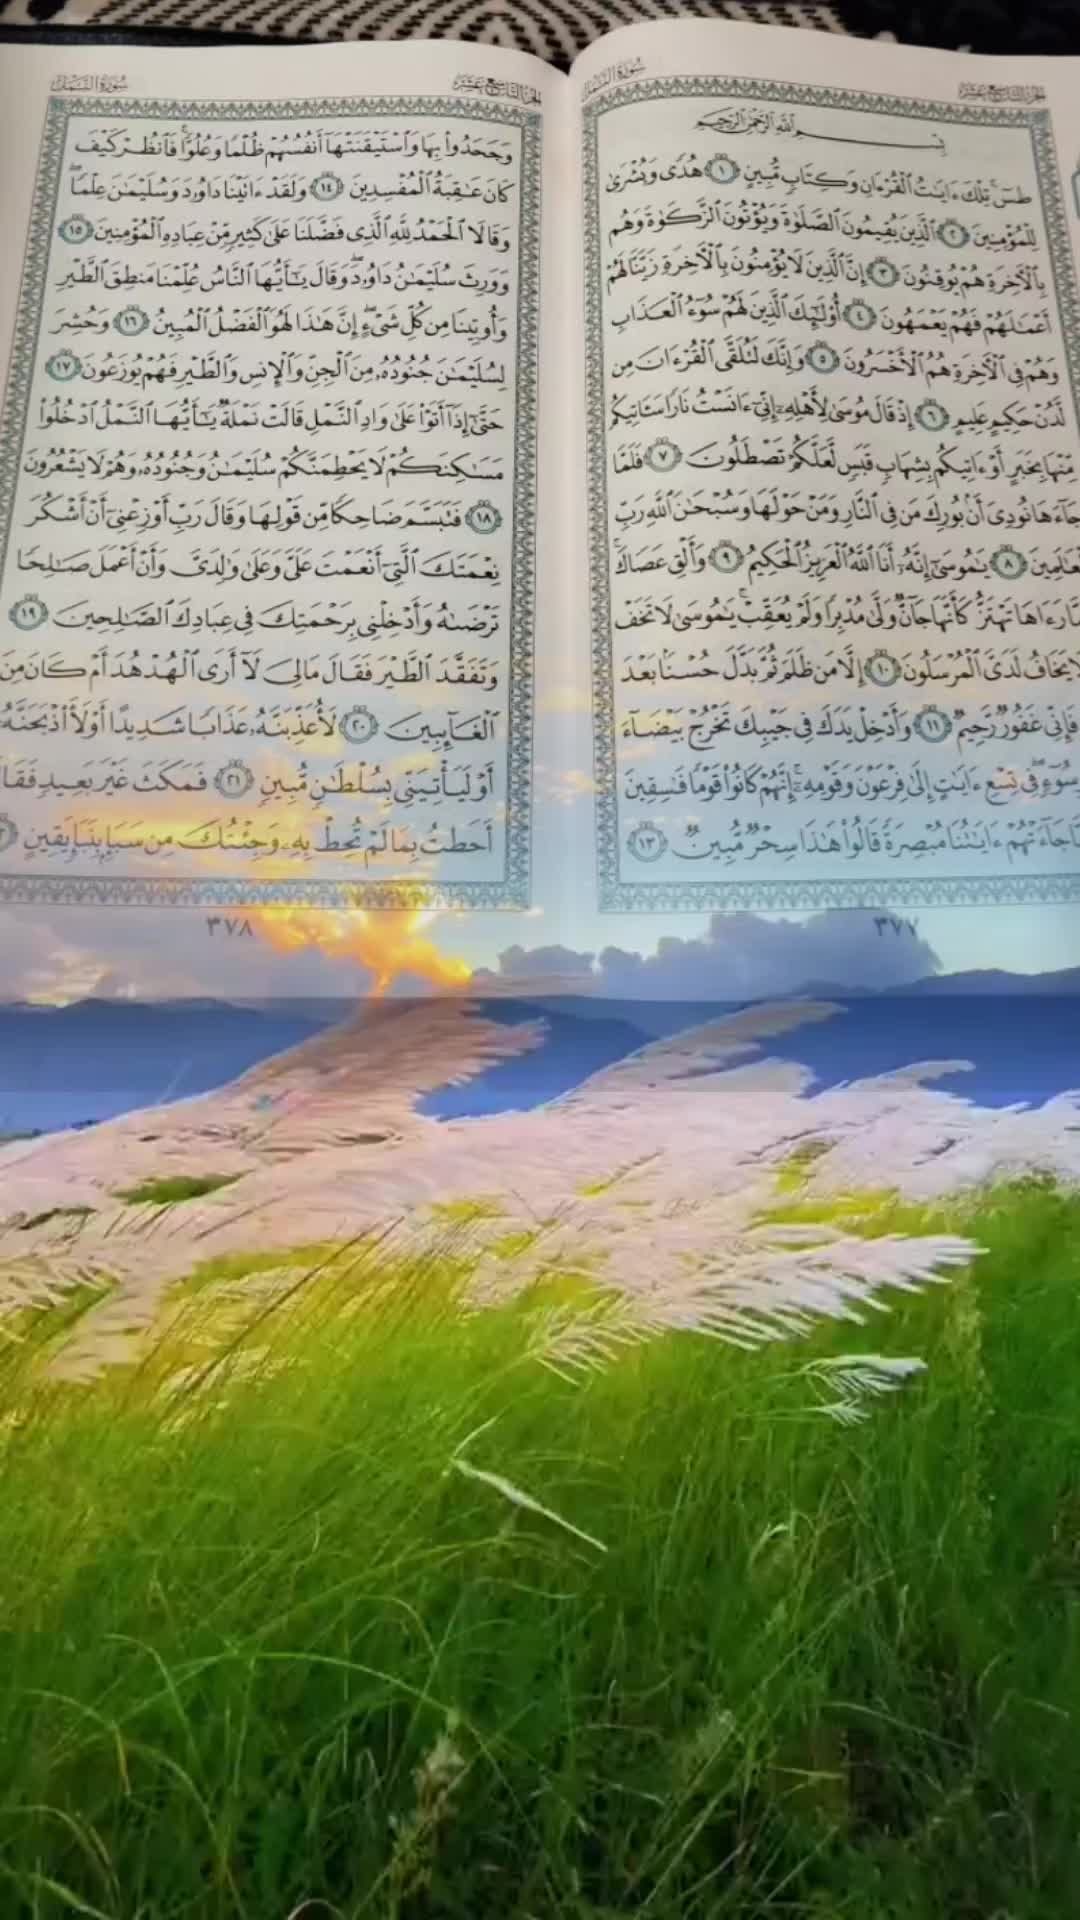 سُورَةُ النَّمْلِ
الجُزْءُ التَّاسِعَ عَشَرَ
بِسْمِ اللَّهِ الرَّحْمَٰنِ الرَّحِيمِ
طسٓ ۚ تِلْكَ ءَايَٰتُ ٱلْقُرْءَانِ وَكِتَابٍ مُّبِينٍ ١ هُدًى وَبُشْرَىٰ
لِلْمُؤْمِنِينَ ٢ ٱلَّذِينَ يُقِيمُونَ ٱلصَّلَوٰةَ وَيُؤْتُونَ ٱلزَّكَوٰةَ وَهُم
بِٱلْأَخِرَةِ هُمْ يُوقِنُونَ ٣ إِنَّ ٱلَّذِينَ لَا يُؤْمِنُونَ بِٱلْأَخِرَةِ زَيَّنَّا لَهُمْ
أَعْمَٰلَهُمْ فَهُمْ يَعْمَهُونَ ٤ أُوْلَٰٓئِكَ ٱلَّذِينَ لَهُمْ سُوٓءُ ٱلْعَذَابِ
وَهُمْ فِى ٱلْأَخِرَةِ هُمُ ٱلْأَخْسَرُونَ ٥ وَإِنَّكَ لَتُلَقَّى ٱلْقُرْءَانَ مِن
لَّدُنْ حَكِيمٍ عَلِيمٍ ٦ إِذْ قَالَ مُوسَىٰ لِأَهْلِهِۦٓ إِنِّىٓ ءَانَسْتُ نَارًا سَـَٔاتِيكُم
مِّنْهَا بِخَبَرٍ أَوْ ءَاتِيكُم بِشِهَابٍ قَبَسٍ لَّعَلَّكُمْ تَصْطَلُونَ ٧ فَلَمَّا
جَآءَهَا نُودِىَ أَنۢ بُورِكَ مَن فِى ٱلنَّارِ وَمَنْ حَوْلَهَا وَسُبْحَٰنَ ٱللَّهِ رَبِّ
ٱلْعَٰلَمِينَ ٨ يَٰمُوسَىٰٓ إِنَّهُۥٓ أَنَا ٱللَّهُ ٱلْعَزِيزُ ٱلْحَكِيمُ ٩ وَأَلْقِ عَصَاكَ ۚ
فَلَمَّا رَءَاهَا تَهْتَزُّ كَأَنَّهَا جَآنٌّ وَلَّىٰ مُدْبِرًا وَلَمْ يُعَقِّبْ ۚ يَٰمُوسَىٰ لَا تَخَفْ
لَا يَخَافُ لَدَىَّ ٱلْمُرْسَلُونَ ١٠ إِلَّا مَن ظَلَمَ ثُمَّ بَدَّلَ حُسْنًۢا بَعْدَ
فَإِنِّى غَفُورٌ رَّحِيمٌ ١١ وَأَدْخِلْ يَدَكَ فِى جَيْبِكَ تَخْرُجْ بَيْضَآءَ
سُوٓءٍ ۖ فِى تِسْعِ ءَايَٰتٍ إِلَىٰ فِرْعَوْنَ وَقَوْمِهِۦٓ ۚ إِنَّهُمْ كَانُواْ قَوْمًا فَٰسِقِينَ
جَآءَتْهُمْ ءَايَٰتُنَا مُبْصِرَةً قَالُواْ هَٰذَا سِحْرٌ مُّبِينٌ ١٣
٣٧٧
سُورَةُ النَّمْلِ
الجُزْءُ التَّاسِعَ عَشَرَ
وَجَحَدُواْ بِهَا وَٱسْتَيْقَنَتْهَآ أَنفُسُهُمْ ظُلْمًا وَعُلُوًّا ۚ فَٱنظُرْ كَيْفَ
كَانَ عَٰقِبَةُ ٱلْمُفْسِدِينَ ١٤ وَلَقَدْ ءَاتَيْنَا دَاوُۥدَ وَسُلَيْمَٰنَ عِلْمًا ۖ
وَقَالَا ٱلْحَمْدُ لِلَّهِ ٱلَّذِى فَضَّلَنَا عَلَىٰ كَثِيرٍ مِّنْ عِبَادِهِ ٱلْمُؤْمِنِينَ ١٥
وَوَرِثَ سُلَيْمَٰنُ دَاوُۥدَ ۖ وَقَالَ يَٰٓأَيُّهَا ٱلنَّاسُ عُلِّمْنَا مَنطِقَ ٱلطَّيْرِ
وَأُوتِينَا مِن كُلِّ شَىْءٍ ۖ إِنَّ هَٰذَا لَهُوَ ٱلْفَضْلُ ٱلْمُبِينُ ١٦ وَحُشِرَ
لِسُلَيْمَٰنَ جُنُودُهُۥ مِنَ ٱلْجِنِّ وَٱلْإِنسِ وَٱلطَّيْرِ فَهُمْ يُوزَعُونَ ١٧
حَتَّىٰٓ إِذَآ أَتَوْاْ عَلَىٰ وَادِ ٱلنَّمْلِ قَالَتْ نَمْلَةٌ يَٰٓأَيُّهَا ٱلنَّمْلُ ٱدْخُلُواْ
مَسَٰكِنَكُمْ لَا يَحْطِمَنَّكُمْ سُلَيْمَٰنُ وَجُنُودُهُۥ وَهُمْ لَا يَشْعُرُونَ
١٨ فَتَبَسَّمَ ضَاحِكًا مِّن قَوْلِهَا وَقَالَ رَبِّ أَوْزِعْنِىٓ أَنْ أَشْكُرَ
نِعْمَتَكَ ٱلَّتِىٓ أَنْعَمْتَ عَلَىَّ وَعَلَىٰ وَٰلِدَىَّ وَأَنْ أَعْمَلَ صَٰلِحًا
تَرْضَىٰهُ وَأَدْخِلْنِى بِرَحْمَتِكَ فِى عِبَادِكَ ٱلصَّٰلِحِينَ ١٩
وَتَفَقَّدَ ٱلطَّيْرَ فَقَالَ مَالِىَ لَآ أَرَى ٱلْهُدْهُدَ أَمْ كَانَ مِنَ
ٱلْغَآئِبِينَ ٢٠ لَأُعَذِّبَنَّهُۥ عَذَابًا شَدِيدًا أَوْ لَأَاْذْبَحَنَّهُۥٓ
أَوْ لَيَأْتِيَنِّى بِسُلْطَٰنٍ مُّبِينٍ ٢١ فَمَكَثَ غَيْرَ بَعِيدٍ فَقَالَ
أَحَطتُ بِمَا لَمْ تُحِطْ بِهِۦ وَجِئْتُكَ مِن سَبَإٍۭ بِنَبَإٍ يَقِينٍ
٣٧٨